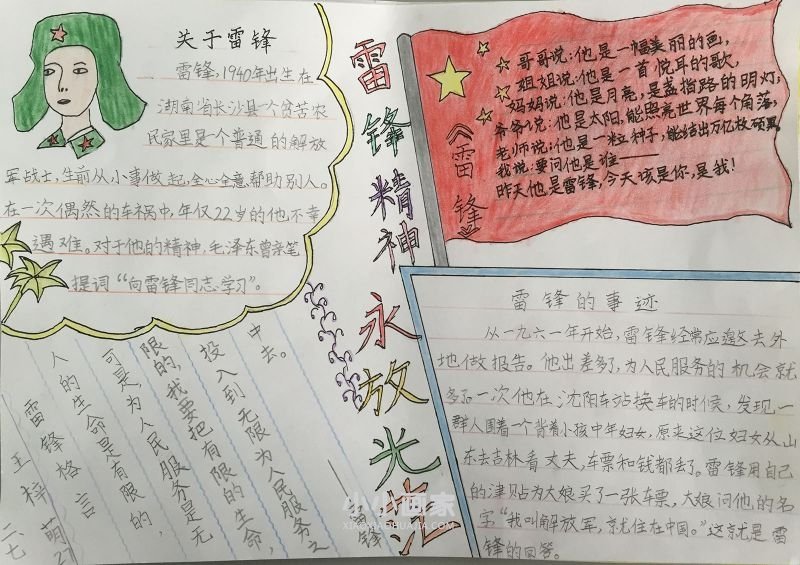 关于雷锋
雷锋，1940年出生在
湖南省长沙县一个贫苦农
民家里是个普通的解放
军战士，生前从小事做起，全心全意帮助别人。
在一次偶然的车祸中，年仅22岁的他不幸
遇难。对于他的精神，毛泽东曾亲笔
提词“向雷锋同志学习”。
雷锋精神永放光芒
哥哥说：他是一幅美丽的画，
姐姐说：他是一首悦耳的歌，
妈妈说：他是月亮，是盏指路的明灯，
爷爷说：他是太阳，能照亮世界每个角落，
老师说：他是一粒种子，能结出万亿枚硕果
我说：要问他是谁——
昨天他是雷锋，今天该是你，是我！
《雷锋》
雷锋的事迹
从一九六一年开始，雷锋经常应邀去外
地做报告。他出差多了，为人民服务的机会就
多了。一次他在沈阳车站换车的时候，发现一
群人围着一个背着小孩中年妇女，原来这位妇女从山
东去吉林看丈夫，车票和钱都丢了。雷锋用自己
的津贴为大娘买了一张车票，大娘问他的名
字“我叫解放军，就住在中国。”这就是雷
锋的回答。
雷锋格言
人的生命是有限的，
可是，为人民服务是无
限的，我要把有限的生命，
投入到无限为人民服务之
中去。
雷锋
二七
王梓萌
27
小小画家
XIAOXIAOHUAJIA.COM